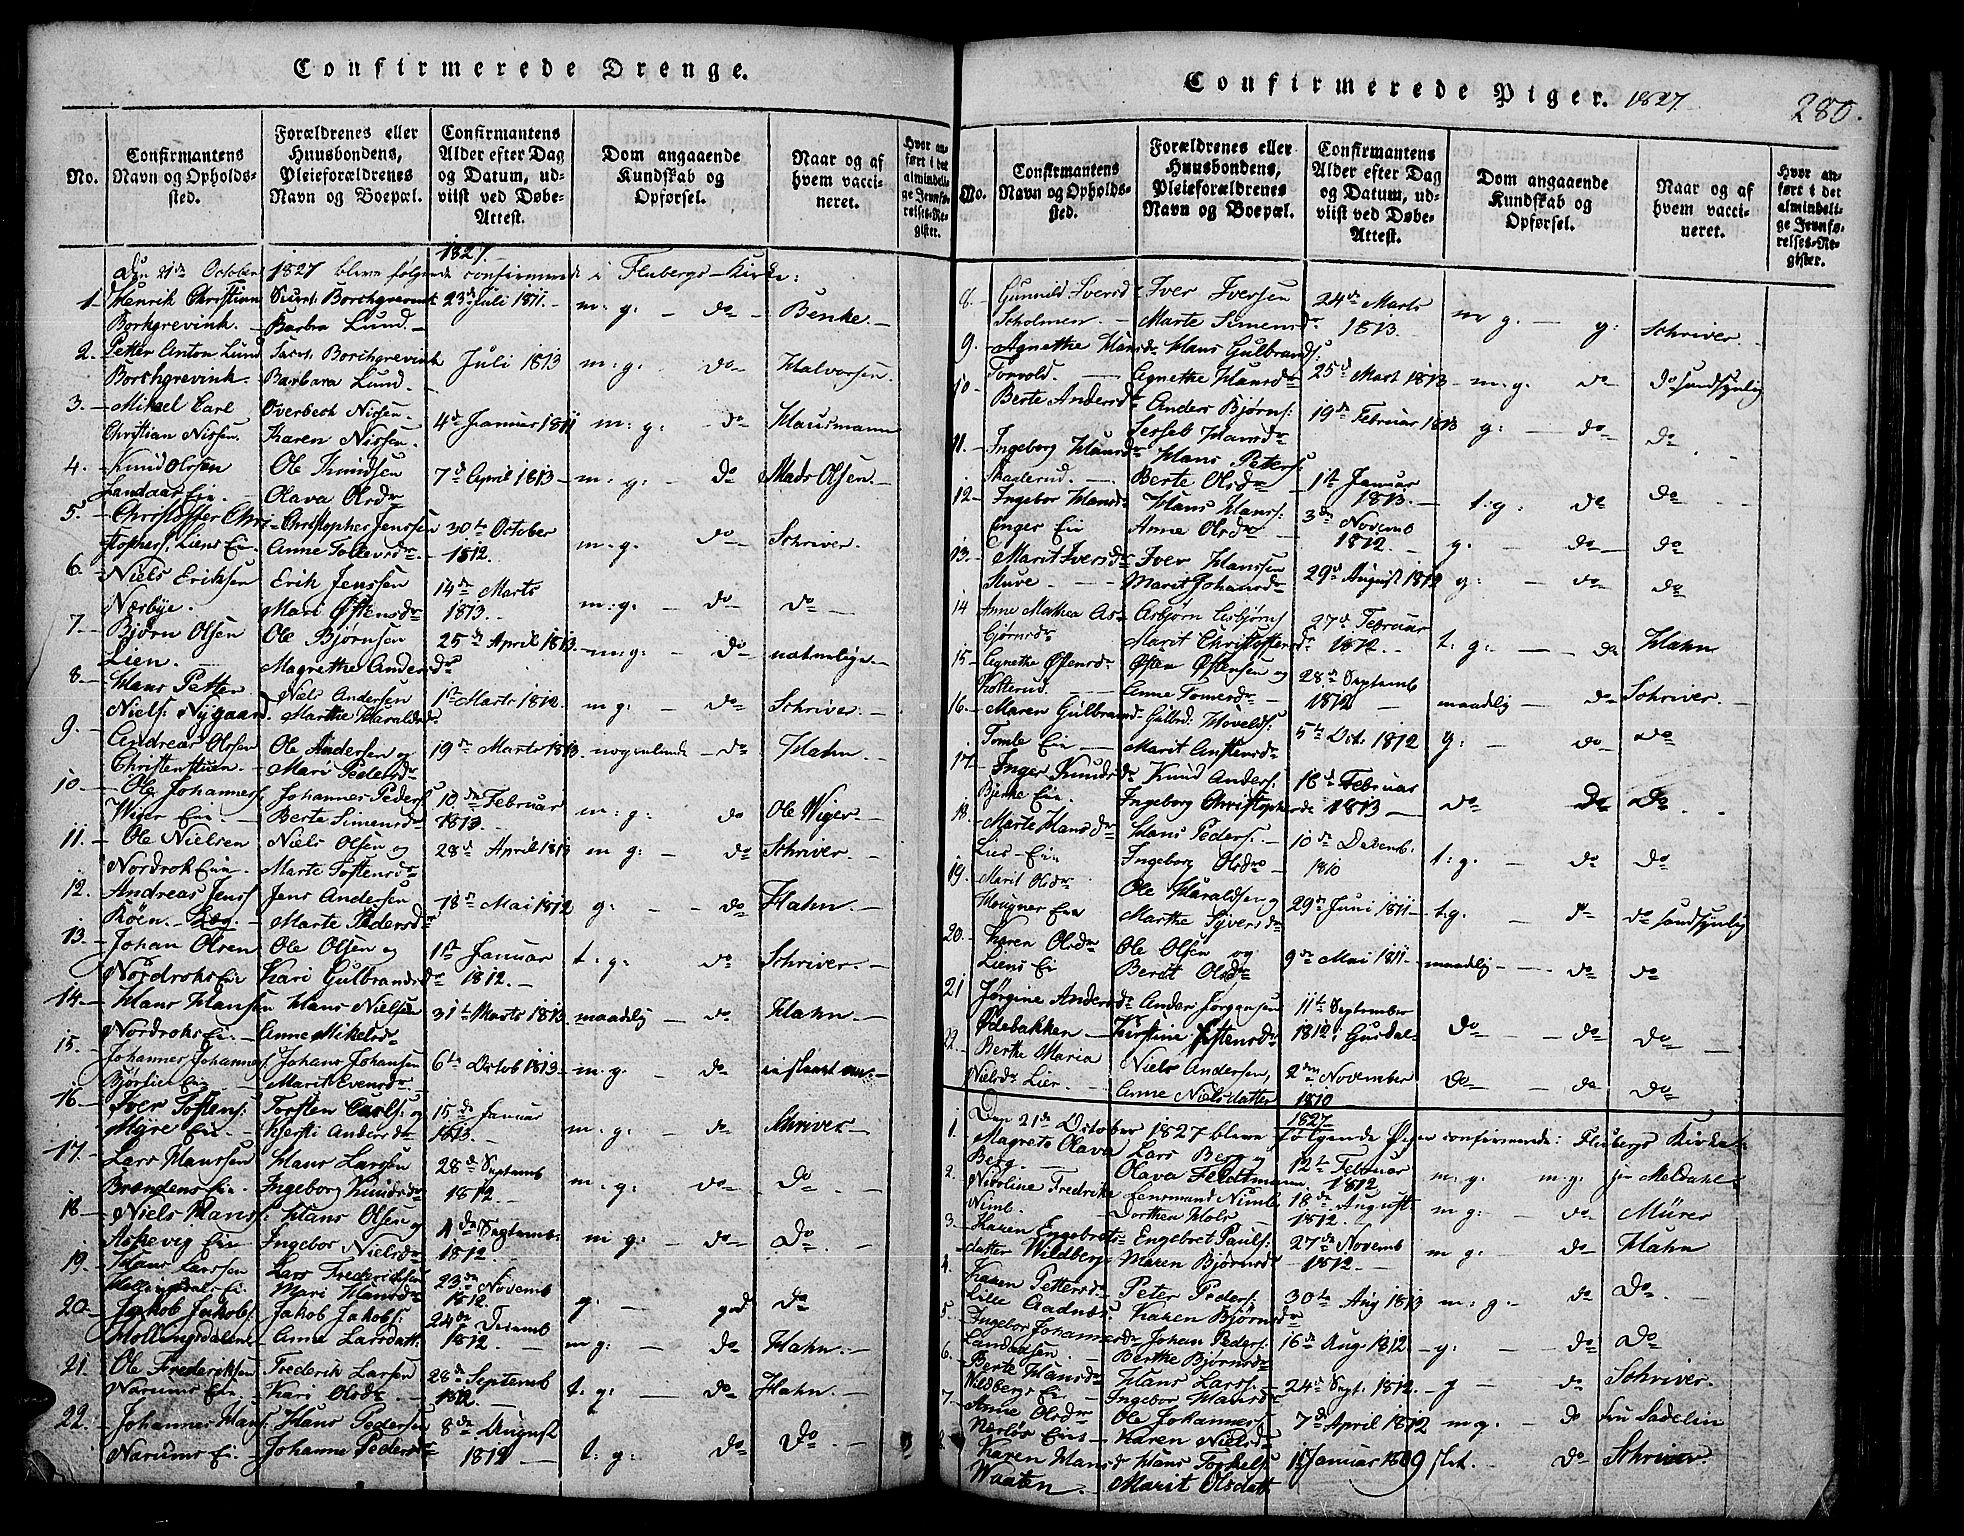 Confirmerede Drenge.
No.
Confirmantens Navn og Opholds-sted.
Forældrenes eller Huusbondens, Pleieforældrenes Navn og Boepæl.
Confirmantens Alder efter Dag og Datum, ud-viist ved Døbe-Attest.
Dom angaaende Kundskab og Opførsel.
Naar og af hvem vacci-neret.
Hvor an-ført i det almindeli-ge Jevnfø-relses-Re-gister.
1827.
Den 21de October 1827 bleve følgende confirmerede i Flubergs-Kirke:
1. Henrik Christian Borchgrevink. Barbra Lund. 23de Juli 1811. m: g. do Benke.
2. Petter Anton Lund Borchgrevink. Borchgrevink Barbara Lund. Juli 1813 m: g. do Halvorsen.
3. Mikael Carl Christian Nissen. Overbech Nissen. Karen Nissen. 4de Januar 1811 m: g: do Hausmann
4. Knud Olssen Landaas Eie. Ole Knudsen Olava Olsdr 7de April 1813 m: g: do Mads Olsen.
5. Christoffer Christophers: Liens Eie. Christopher Jenssen Anne Tollevsdr 30te October 1812. m: g. do Schriver.
6. Niels Eriksen Nærbye. Erik Jenssen Mari Østensdr 14de Marts 1813. m: g. do do
7. Bjørn Olsen Lien. Ole Bjørnsen Magrethe Andersdr 25de April 1813. m: g: do naturlige.
8. Hans Petter Niels: Nygaard. Niels Andersen Marthe Haraldsdr 1ste Marts 1812. m: g: do Schriver.
9. Andreas Olssen Christenstuen. Ole Andersen og Mari Pedersdr 19de Marts 1813. nogenlunde do Hahn.
10. Ole Johannes: Wiger Eie. Johannes Peders: Berte Simensdr 10de Februar 1813. m: g: do Ole Wiger.
11. Ole Nielsen Nordrok Eie. Niels Olsen og Marte Tostensdr 28de April 1813 m g: do Schriver.
12. Andreas Jenss Røen. Læg. Jens Andersen Marte Pedersdr 18de Mai 1812 g: do Hahn.
13. Johan Olsen Nordroks Eie Ole Olsen og Kari Gulbrandsdr 1ste Januar 1812. t: g: do Schriver.
14. Hans Hansen Nordroks Eie. Hans Nielsen Anne Mikelsdr 31te Marts 1813. maadelig do Hahn.
15. Johannes Johannes: Bjørlien Eie Johans Johansen Marit Evensdr 6te Octob 1813. m: g: do
16. Iver Tostens: Myre Eie. Torsten Carls: og Kjersti Andersdr 15de Januar 1813. m: g: do Schriver.
17. Lars Hanssen Brændens Eie. Hans Larssen Ingeborg Knudsdr 28de Septemb 1812. m: g: do Do
18. Niels Hans: Askevig Eie Hans Olsen og Ingebor Nielsdr 1de Septemb: 1812. m g: do Do
19. Hans Larssen Eie. Lars Fredericksen Mari Hansdr 23de Novemb 1812. g: god do
20. Jakob Jakobs: Hollingsdalen Jakob Jakobs: Anne Larsdatt. 24de Decemb 1812. m g: do Hahn.
21. Ole Frederiksen Narums Eie. Frederik Larssen Kari Olsdr 28de Septemb 1812. t: g: do Hahn.
22. Johannes Hans: Narums Eie. Hans Pedersen Johanne Pedersdr 8de August 1812 t: g: do Do
Confirmerede Piger. 1827
280.
No.
Confirmantens Navn og Opholds-sted.
Forældrenes eller Huusbondens, Pleieforældrenes Navn og Boepæl.
Confirmantens Alder efter Dag og Datum, ud-viist ved Døbe-Attest.
Dom angaaende Kundskab og Opførsel.
Naar og af hvem vacci-neret.
Hvor an-ført i det almindeli-ge Jevnfø-relses-Re-gister.
8. Gunnild Iversd Scholmen. Iver Iversen Marte Simensdr 24de Marts 1813. m g. g: Schriver.
9. Agnethe Hansdr Torvold. Hans Gulbrands: Agnethe Hansdr 25de Mart 1813 m: g: do do sandsynlig
10. Berte Andersdr Anders Bjørns: Sesseb Hansdr 19de Februar 1813 g: do do
11. Ingeborg Hansdr Skaslerud. Hans Petters: Berte Olsdr 1ste Januar 1813. t: g: do do
12. Ingebor Hansdr Enger Eie Hans Hans: Anne Olsdr 3de Novemb 1812. g: do do
13. Marit Iversdr Stuve. Iver Hanssen Marit Johansdr 29de August 1812 g: do do
14 Anne Mathea Asbjørnsdr Asbjørn Asbjørns Marit Christoffersdr 27de Februar 1812. t: g: do Hahn
15. Agnethe Østensdr Kolterud. Østen Østensen og Anne Tomesdr 28de Septemb 1812 maadelig do Schriver.
16. Maren Gulbrandsd Tomle Eie Gulbd. Hovelds: Marit Anstensdr 5te Oct. 1812 g: do do
17. Inger Knudsdr Bjerke Eie. Knud Anders: Ingeborg Christophersdr 16de Februar 1813 do Do Do
18. Marte Hansdr Lies Eie Hans Peders: Ingeborg Olsdr 10de Decemb: 1810 t: g: do do
19. Marit Olsdr Hougner Eie Ole Haraldsen og Marthe Syversdr 29de Juni 1811 t: g: do sandsynlig
20. Karen Olsdr Liens Ei Ole Olsen og Berit Olsdr 9de Mai 1811. maadelig do do
21 Jørgine Andersdr Ødebakken Anders Jørgensen Kirstine 11te September 1812 i Gusdal do do do
22. Berthe Maria Nielsdr Lier. Niels Andersen, Anne Nielsdatter 2den November 1810 do do do
1827
Den 21de October 1827 bleve følgende Piger confirmerede: Flubergs Kirke
1. Magrete Olava Berg. Lars Berg og Olava Feldtmann. 12te Februar 1812. m: g: m: g: MDahl
2. Nicoline Fredrike Nimb. Lensmand Nimb Dorthea Holst 18de August 1812. m g: do Mürer
3. Karen Engebretsdatter Wildberg. Engebret Pauls: Maren Bjørnsdr 27de Novemb 1812. m g: do Hahn
4. Karen Pettersdr Lille Aadnæs. Peter Peders: Karen Bjørnsdr 30te Aug 1813 m: g: do Do
5. Ingebor Johannesdr Landaasen. Johan Peders: Berthe Bjørnsdr 16de Aug. 1812 g: do Do
6. Berte Hansdr Wildbergs Ei Hans Larss: Ingebor Hansdr 24de Sept. 1812. g do Schriver.
7. Anne Olsdr Ole Johannes: Karen Nielsdr 7de April 1812 m g: do Fru Sadelin
8. Karen Hansd Waaten. Hans Torkels: Marit Olsdatt. 1ste Januar 1809 slet. do Schriver.